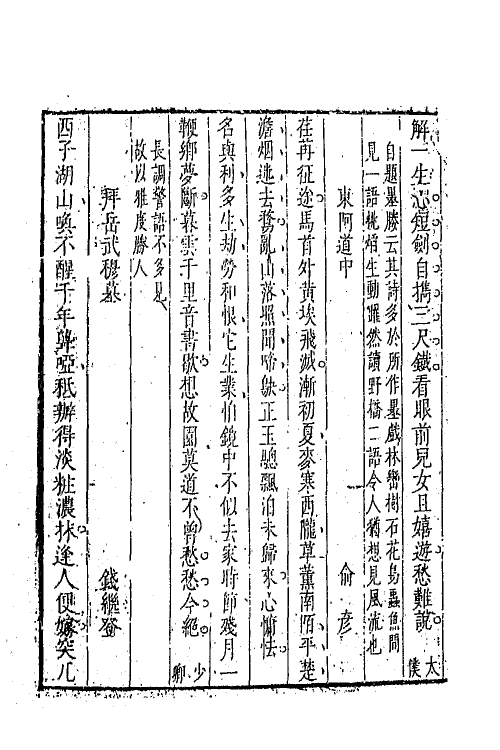 解一生心短劍自擕三尺鐵看眼前兒女且嬉遊愁難說 太僕
自題墨勝云其詩多於所作墨戲林巒樹石花鳥蟲魚間
見一語桃情生動躍然讀野橋二語令人猶想見風流也
東阿道中 俞彥
荏苒征途馬首外黃埃飛滅漸初夏麥寒西隴草薰南陌平楚
澹烟迷去鶩亂山落照聞啼鴂正玉驄飄泊未歸來心慵怯
名與利多生劫勞和恨它生業怕鏡中不似去家時節殘月一
鞭鄉夢斷暮雲千里音書歇想故園莫道不曾愁愁今絕 少卿
長調警語不多見
故以雅度勝人
拜岳武穆墓 錢繼登
西子湖山喚不醒千年聾啞秪辦得淡粧濃抹逢人便嫁笑几